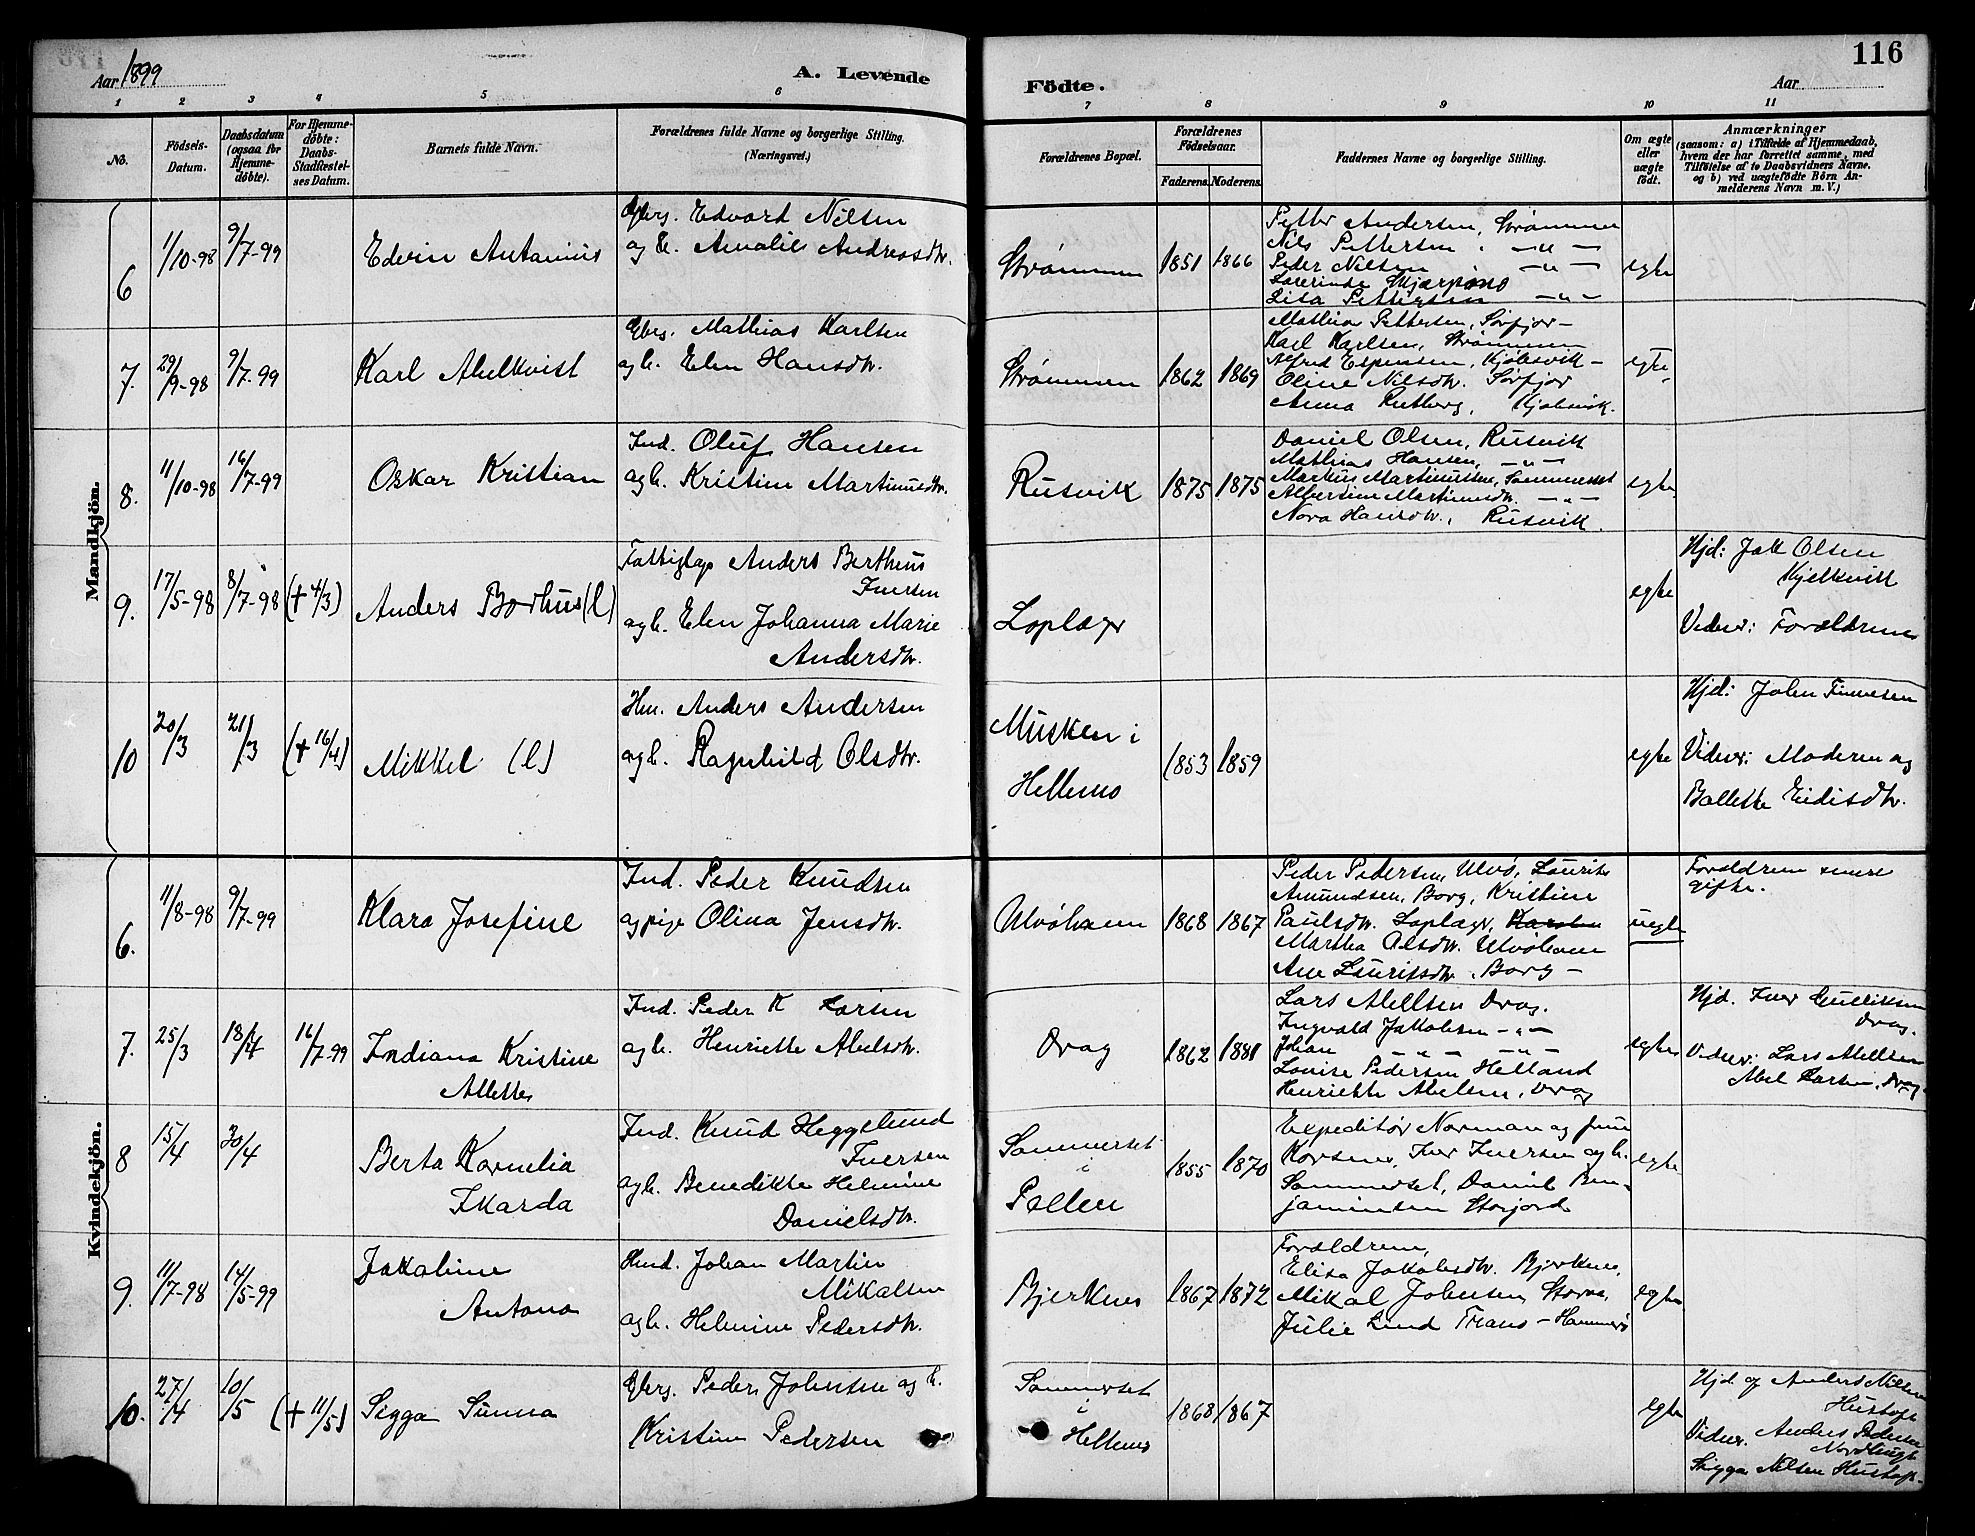 116
Aar 1899
A. Levende
Födte.
Aar
1 2 3 4 5 6 7 8 9 10 11
No.
Födsels-
Datum.
Daabsdatum
(ogsaa for
Hjemme-
døbte).
For Hjemme-
döbte:
Daabs-
Stadfæstel-
ses Datum.
Barnets fulde Navn.
Forældrenes fulde Navne og borgerlige Stilling.
(Næringsvei.)
Forældrenes Bopæl.
Forældrenes
Födselsaar.
Faderens. Moderens.
Faddernes Navne og borgerlige Stilling.
Om ægte
eller
uægte
födt.
Anmærkninger
(saasom: a) i Tilfælde af Hjemmedaab,
hvem der har forrettet samme, med
Tilföielse af to Daabsvidners Navne.
og b) ved uægtefödte Börn An-
melderens Navn m. V.)
Mandkjön.
6
1/10-98
9/7-99
Edvin Antonius
Gbrg. Edvard Nilsen
og h. Amalie Andreasdtr.
Strømmen
1851 1866
Petter Andersen, Strømmen
Nils Pettersen, -"-
Peder Nilsen -"-
Lærerinde Skjærpsmo
Lisa Pettersen -"-
egte
7.
29/9-98
9/7-99
Karl Abelkvist
Gbrg. Mathias Karlsen
og h. Elen Hansdtr.
Strømmen
1862 1869
Mathias Pettersen, Sørfjor-
Karl Karlsen, Strømmen
Alfred Espensen, Kjøbsvik-
Oline Nilsdtr. Sørfjor
Anna Rutberg, Kjøbsvik.
egte
8.
11/10-98
16/7-99
Oskar Kristian
Ind. Oluf Hansen
og h. Kristine Martinusdtr.
Rusvik
1875 1875
Daniel Olsen, Rusvik
Mathias Hansen, -"-
Markus Martinussen, Sommerset
Albertine Martinusdtr. -"-
Nora Hansdtr., Rusvik.
egte
9.
17/5-98
8/7-98
(+ 4/3)
Anders Borhus (l)
Fattiglap Anders Bertheus
Iversen
og h. Elen Johanna Marie
Andersdtr.
Loplægr
egte
Hjd: Jak Olsen
Kjelkvik
Vidner: Forældrene
10
20/3
21/3
(+ 16/4)
Mikkel (l)
Hm. Anders Andersen
og h. Ragnhild Olsdtr.
Musken i
Hellemo
1853 1859
egte
Hjd: John Finnesen
Vidner: Moderen og
Ballette Eridisdtr.
Kvindekjön.
6.
11/8-98
9/7-99
Klara Josefine
Ind. Peder Knudsen
og pige Olina Jensdtr.
Ulvöhavn
1868 1867
Peder Pedersen, Ulvö, Laurits
Amundsen, Borg, Kristine
Paulsdtr. Loplægr,
Martha Olsdtr. Ulvöhavn
Ane Lauritsdtr. Borg -
uegte
Forældrene senere
gifte.
7.
25/3
18/4
16/7-99
Indiana Kristine
Allette
Ind. Peder K Larsen
og h. Henriette Abelsdtr.
Drag
1862 1881
Lars Abelsen Drag.
Ingvald Jakobsen -"-
Johan -"- -"-
Louise Pedersen Helland
Henriette Abelsen, Drag
egte
Hjd. Iver Gulliksen
Drag.
Vidner: Lars Abelsen
Abel Larsen, Drag
8
15/4
30/4
Berta Kornelia
Ikarda
Ind. Knud Heggelund
Iversen
og h. Benedikte Helmine
Danielsdtr.
Sommerset
i
Pollen
1855 1870
Expeditør Norman og frue
Korsnes, Iver Iversen og h.
Sommerset, Daniel Ben-
jaminsen Storjord
egte
9.
11/7-98
14/5-99
Jakobine
Antona
Ind. Johan Martin
Mikalsen
og h. Helmine Pedersdtr.
Bjerknes
1867 1872
Forældrene,
Elisa Jakobsdtr. Bjerknes,
Mikal Johnsen,
Julie Lind Tranø - Hammerö
egte
10.
27/4
10/5
(+ 11/5)
Sigga Sunna
Gbrg. Peder Johnsen og h.
Kristine Pedersen
Sommerset
i
Hellemo
1868 1867
egte
Hjd. af Anders Nilsen
Hustoft
Vidner. Anders Pedersen
Nordbugt
Sigga Nilsen Hustoft.